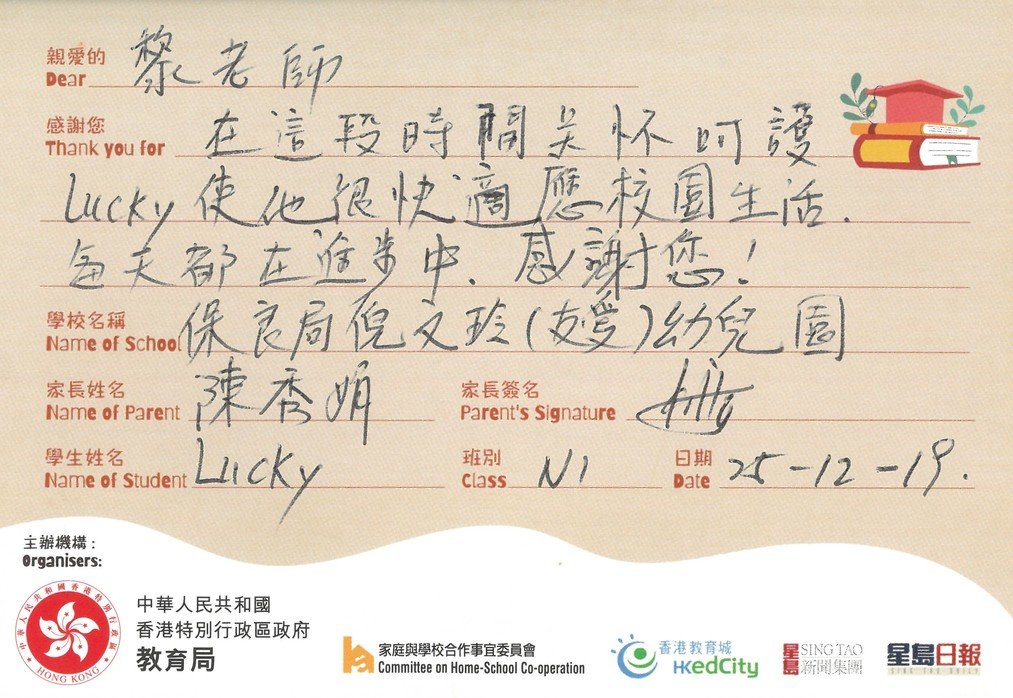 親愛的 黎老師
Dear
感謝您 在這段時間关怀呵護
Thank you for
Lucky 使他很快適應校園生活.
每天都在進步中. 感謝您!
學校名稱 保良局倪文玲(友愛)幼兒園
Name of School
家長姓名 陳秀娟 家長簽名
Name of Parent Parent's Signature
學生姓名 Lucky 班別 N1 日期 25-12-19.
Name of Student Class Date
主辦機構：
Organisers:
中華人民共和國香港特別行政區
HONG KONG
中華人民共和國
香港特別行政區政府
教育局
家庭與學校合作事宜委員會
Committee on Home-School Co-operation
香港教育城
HKedCity
星島 SING TAO
新聞集團
星島日報
SING TAO DAILY